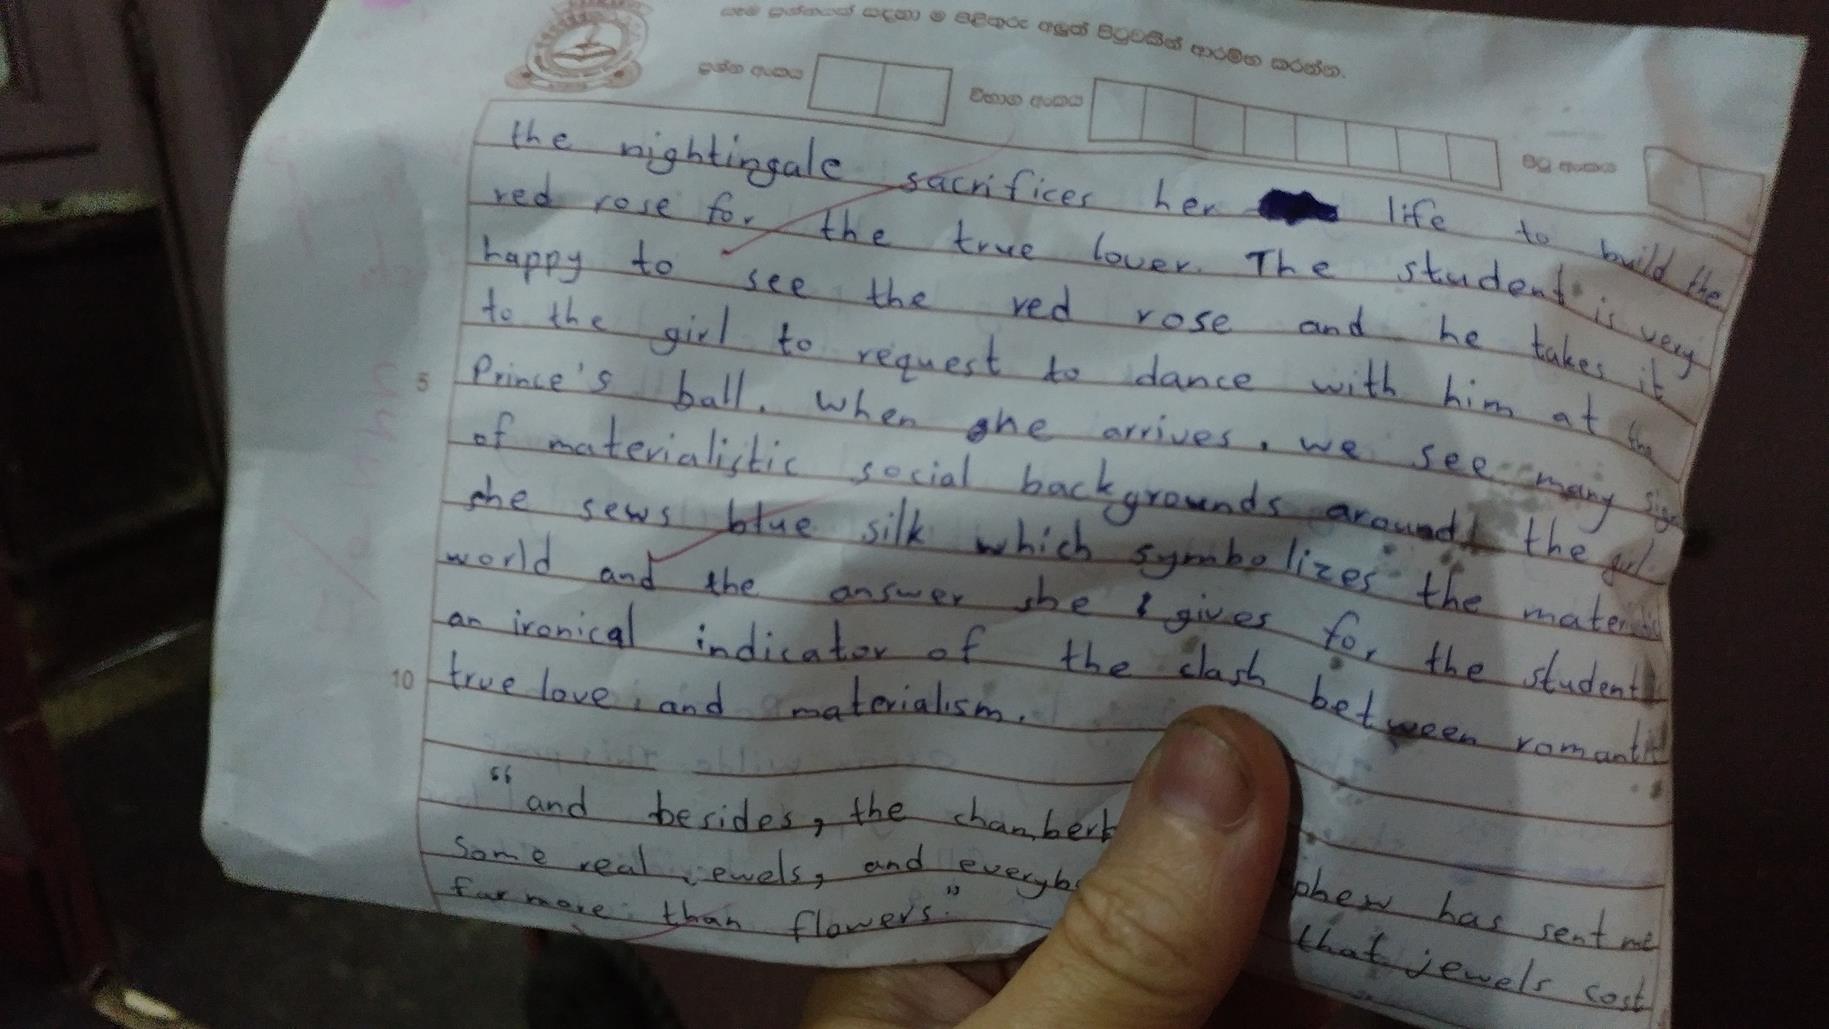 සෑම ප්‍රශ්නයක් සඳහා ම පිළිතුරු අලුත් පිටුවකින් ආරම්භ කරන්න.
ප්‍රශ්න අංකය විභාග අංකය පිටු අංකය
the nightingale sacrifices her life to build the
red rose for the true lover. The student is very
happy to see the red rose and he takes it
to the girl to request to dance with him at the
5 Prince's ball. When she arrives, we see many
of materialistic social backgrounds around the girl.
she sews blue silk which symbolizes the
world and the answer she gives for the student
an ironical indicator of the clash between
10 true love and materialism.
"and besides, the phew has sent me
Some real jewels, and that jewels cost
far more than flowers."